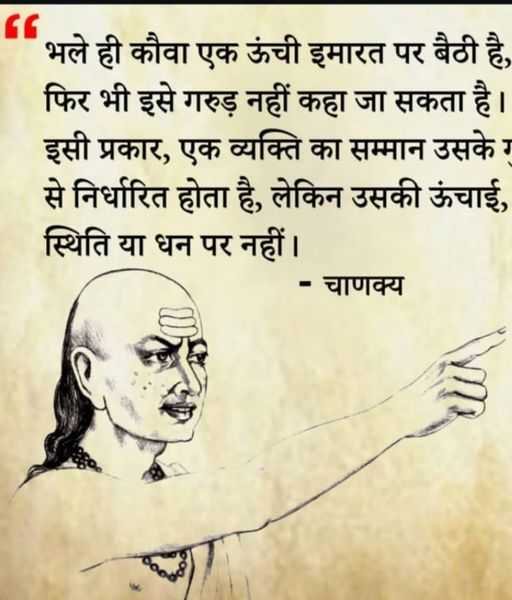 भले ही कौवा एक ऊंची इमारत पर बैठी है,
फिर भी इसे गरुड़ नहीं कहा जा सकता है।
इसी प्रकार, एक व्यक्ति का सम्मान उसके
से निर्धारित होता है, लेकिन उसकी ऊंचाई,
स्थिति या धन पर नहीं।
- चाणक्य